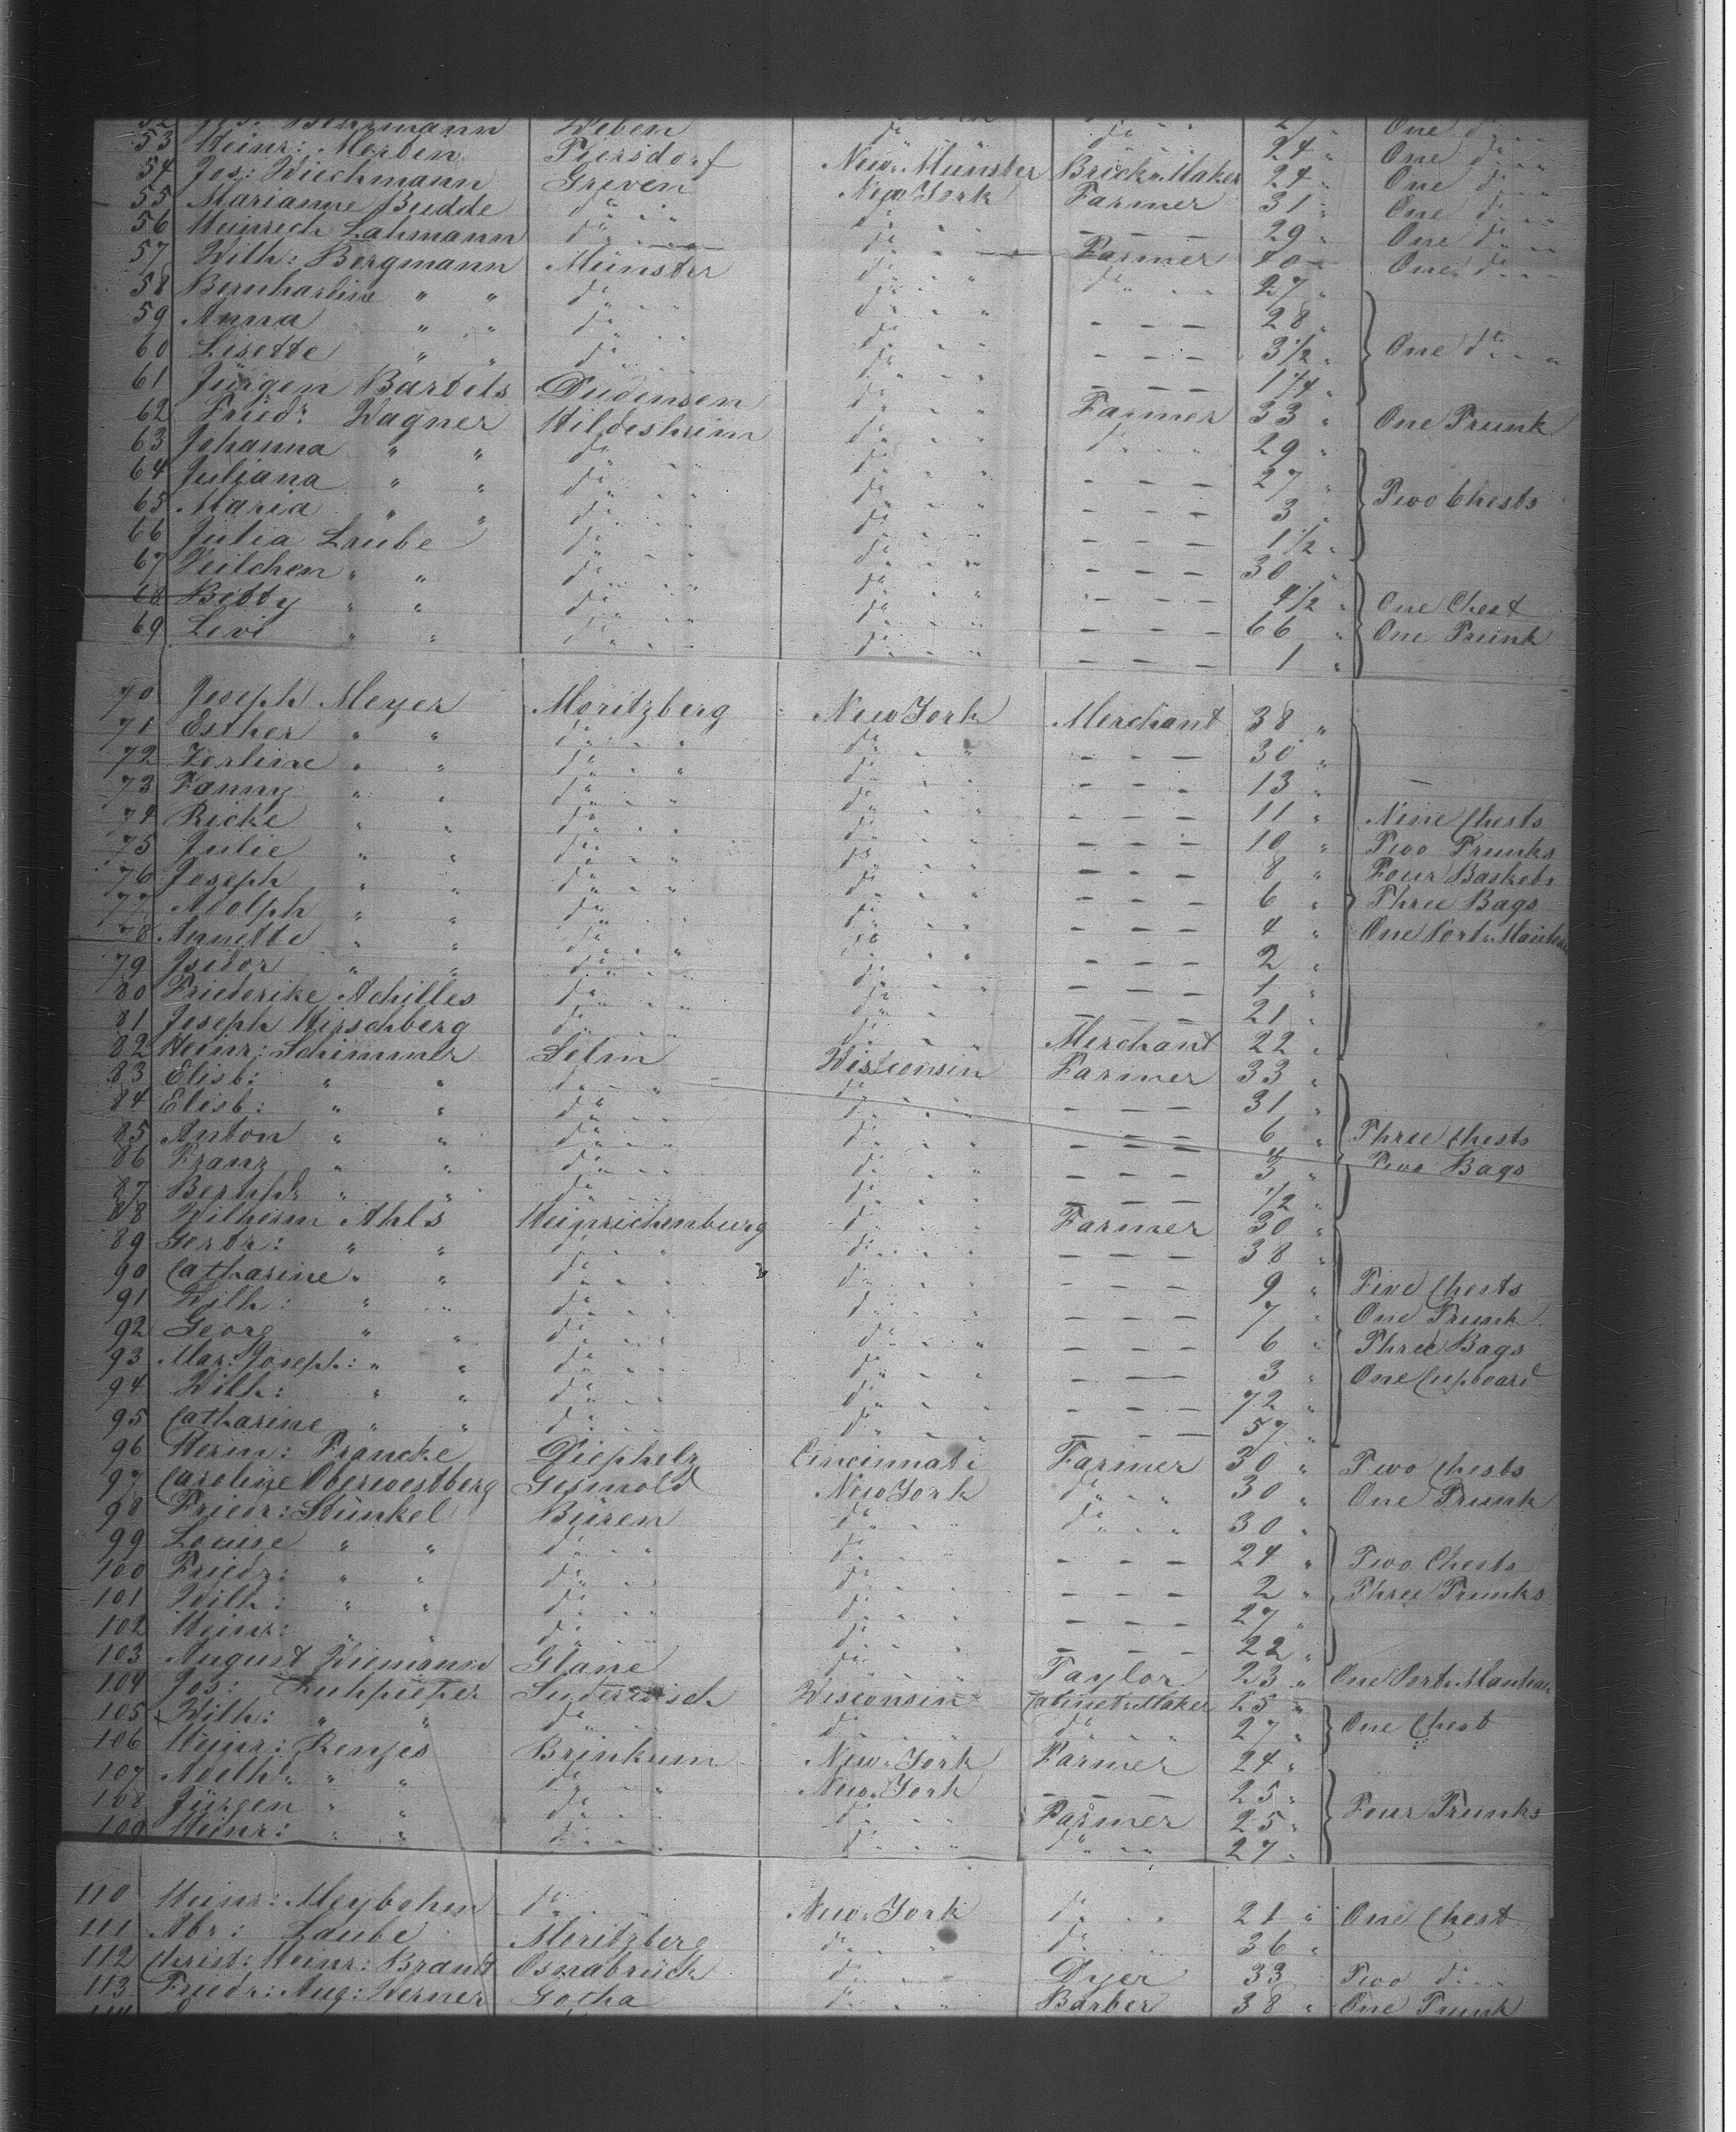 52 Jos: Behrmann Weben do 27 " One do
53 Heinr: Merben Piersdorf do 24 " One do
54 Jos: Wiechmann Greven New Münster Brick Maker 24 " One do
55 Marianne Budde do New York Farmer 31 " One do
56 Heinrich Lahmann do do — — — 29 " One do
57 Wilh: Bergmann Münster do Farmer 40 One do
58 Bernhardine " " do do do 27 "
59 Anna " " do do — — — 28 "
60 Lisette " " do do — — — 3 1/2 " One do
61 Jürgen Bartels Dudensen do — — — 1/4 "
62 Friedr Wagner Hildesheim do Farmer 33 " One Trunk
63 Johanna " " do do do 29 "
64 Juliana " " do do — — — 27 " Two Chests
65 Maria " " do do — — — 3 "
66 Julia Laube do do — — — 1 1/2 "
67 Veilchen " " do do — — — 30 "
68 Betty " " do do — — — 4 1/2 " One Chest
69 Levi " " do do — — — 66 " One Trunk
— — — 1 "
70 Joseph Meyer Moritzberg New York Merchant 38 "
71 Esther " " do do — — — 30 "
72 Zerline " " do do — — — 13 "
73 Fanny " " do do — — — 11 " Nine Chests
74 Ricke " " do do — — — 10 " Two Trunks
75 Julie " " do do — — — 8 " Four Baskets
76 Joseph " " do do — — — 6 " Three Bags
77 Adolph " " do do — — — 4 " One Port Manteau
78 Annette " " do do — — — 2 "
79 Isidor " " do do — — — 1 "
80 Friederike Achilles do do — — — 21 "
81 Joseph Hirschberg do do Merchant 22 "
82 Heinr: Schimmer Selm Wisconsin Farmer 33 "
83 Elisb: " " do do — — — 31 "
84 Elisb: " " do do — — — 6 " Three Chests
85 Anton " " do do — — — 3 " Two Bags
86 Franz " " do do — — — 1/2 "
87 Bernhd " " do do
88 Wilhelm Ahls Heinrichenburg do Farmer 30 "
89 Gerdr: " " do do — — — 38 "
90 Catharine " " do do — — — 9 " Five Chests
91 Wilh: " " do do — — — 7 " One Trunk
92 Georg " " do do — — — 6 " Three Bags
93 Mar: Joseph: " " do do — — — 3 " One Cupboard
94 Wilh: " " do do — — — 72 "
95 Catharine " " do do — — — 57 "
96 Herm: Francke Diepholz Cincinnati Farmer 30 " Two Chests
97 Caroline Oberwestberg Gesmold New York do 30 " One Trunk
98 Friedr: Stünkel Büren do do 30 "
99 Louise " " do do — — — 24 " Two Chests
100 Friedr: " " do do — — — 2 " Three Trunks
101 Wilh: " " do do — — — 27 "
102 Heinr: " " do do — — — 22 "
103 August Kiemann Glane do Taylor 23 " One Port Manteau
104 Jos: Wisconsin Cabinet Maker 25 "
105 Wilh: " " do do do 27 " One Chest
106 Heinr: Renjes Brinkum New York Farmer 24 "
107 Adelh: " " do New York — — — 25 "
108 Jürgen " " do do Farmer 25 " Four Trunks
109 Heinr: " " do do do 27 "
110 Heinr: Meybohm do New York do 21 " One Chest
111 Abr: Laube Moritzberg do do 36 "
112 Christ: Heinr: Brandt Osnabrück do Dyer 33 Two do
113 Friedr: Aug: Kerner Gotha do Barber 38 " One Trunk